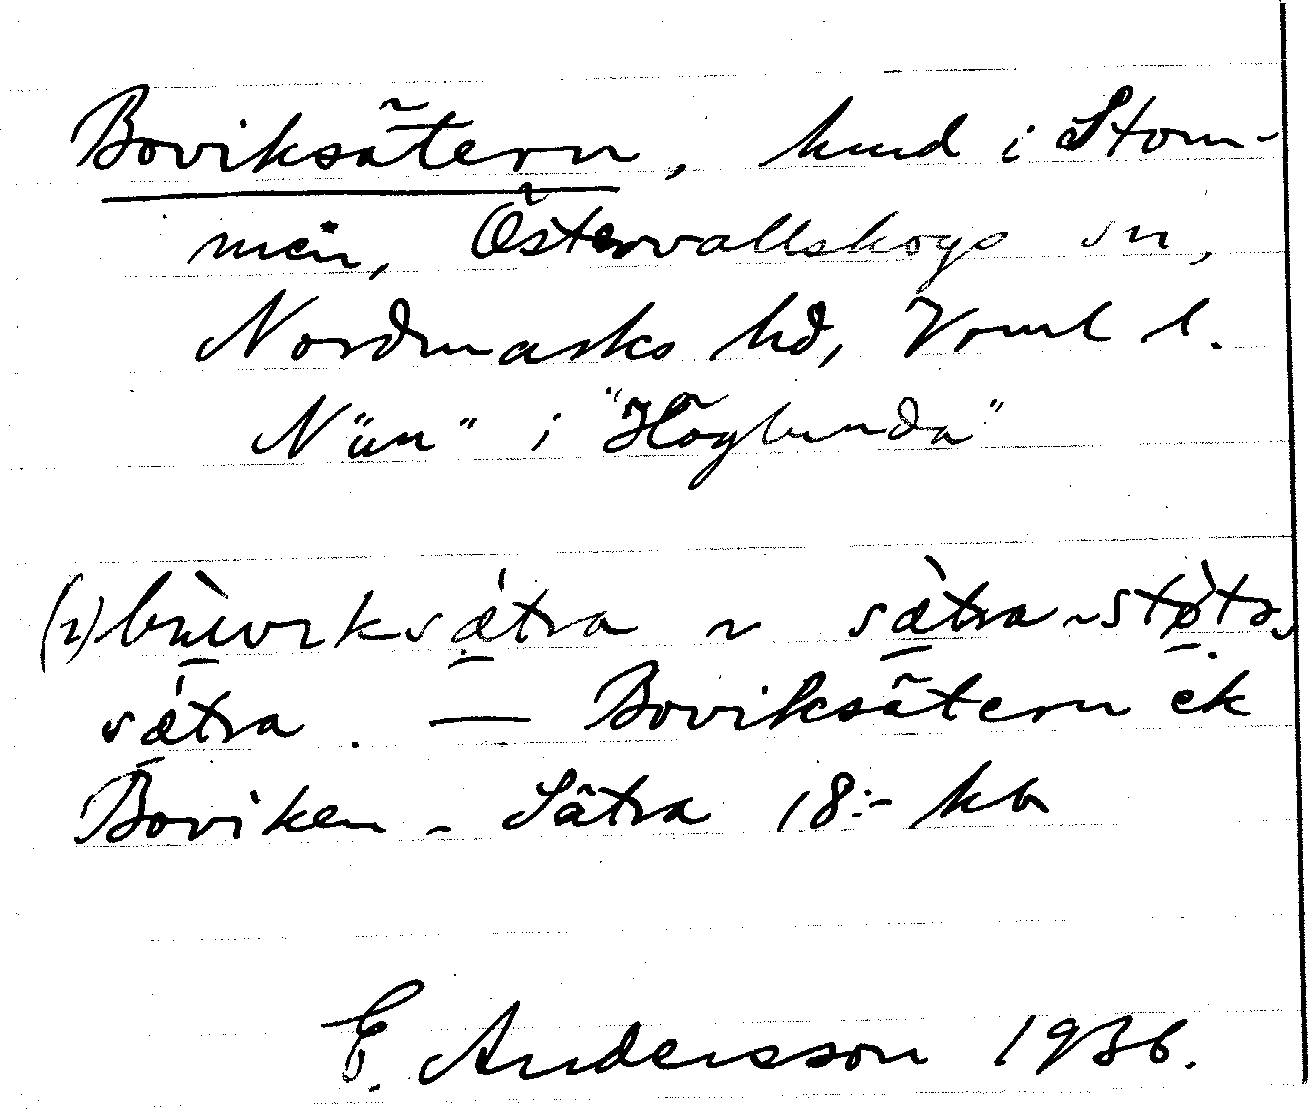 Boviksätern, hmd i Stom-
men, Östervallskogs sn,
Nordmarks hd, Vrml l.
N "ün" i "Höglunda"
sǽtra ~ sæ̀tra ~
sǽtra. — Boviksätern ek
Boviken - Sätra 18:- kb
E. Andersson 1936.